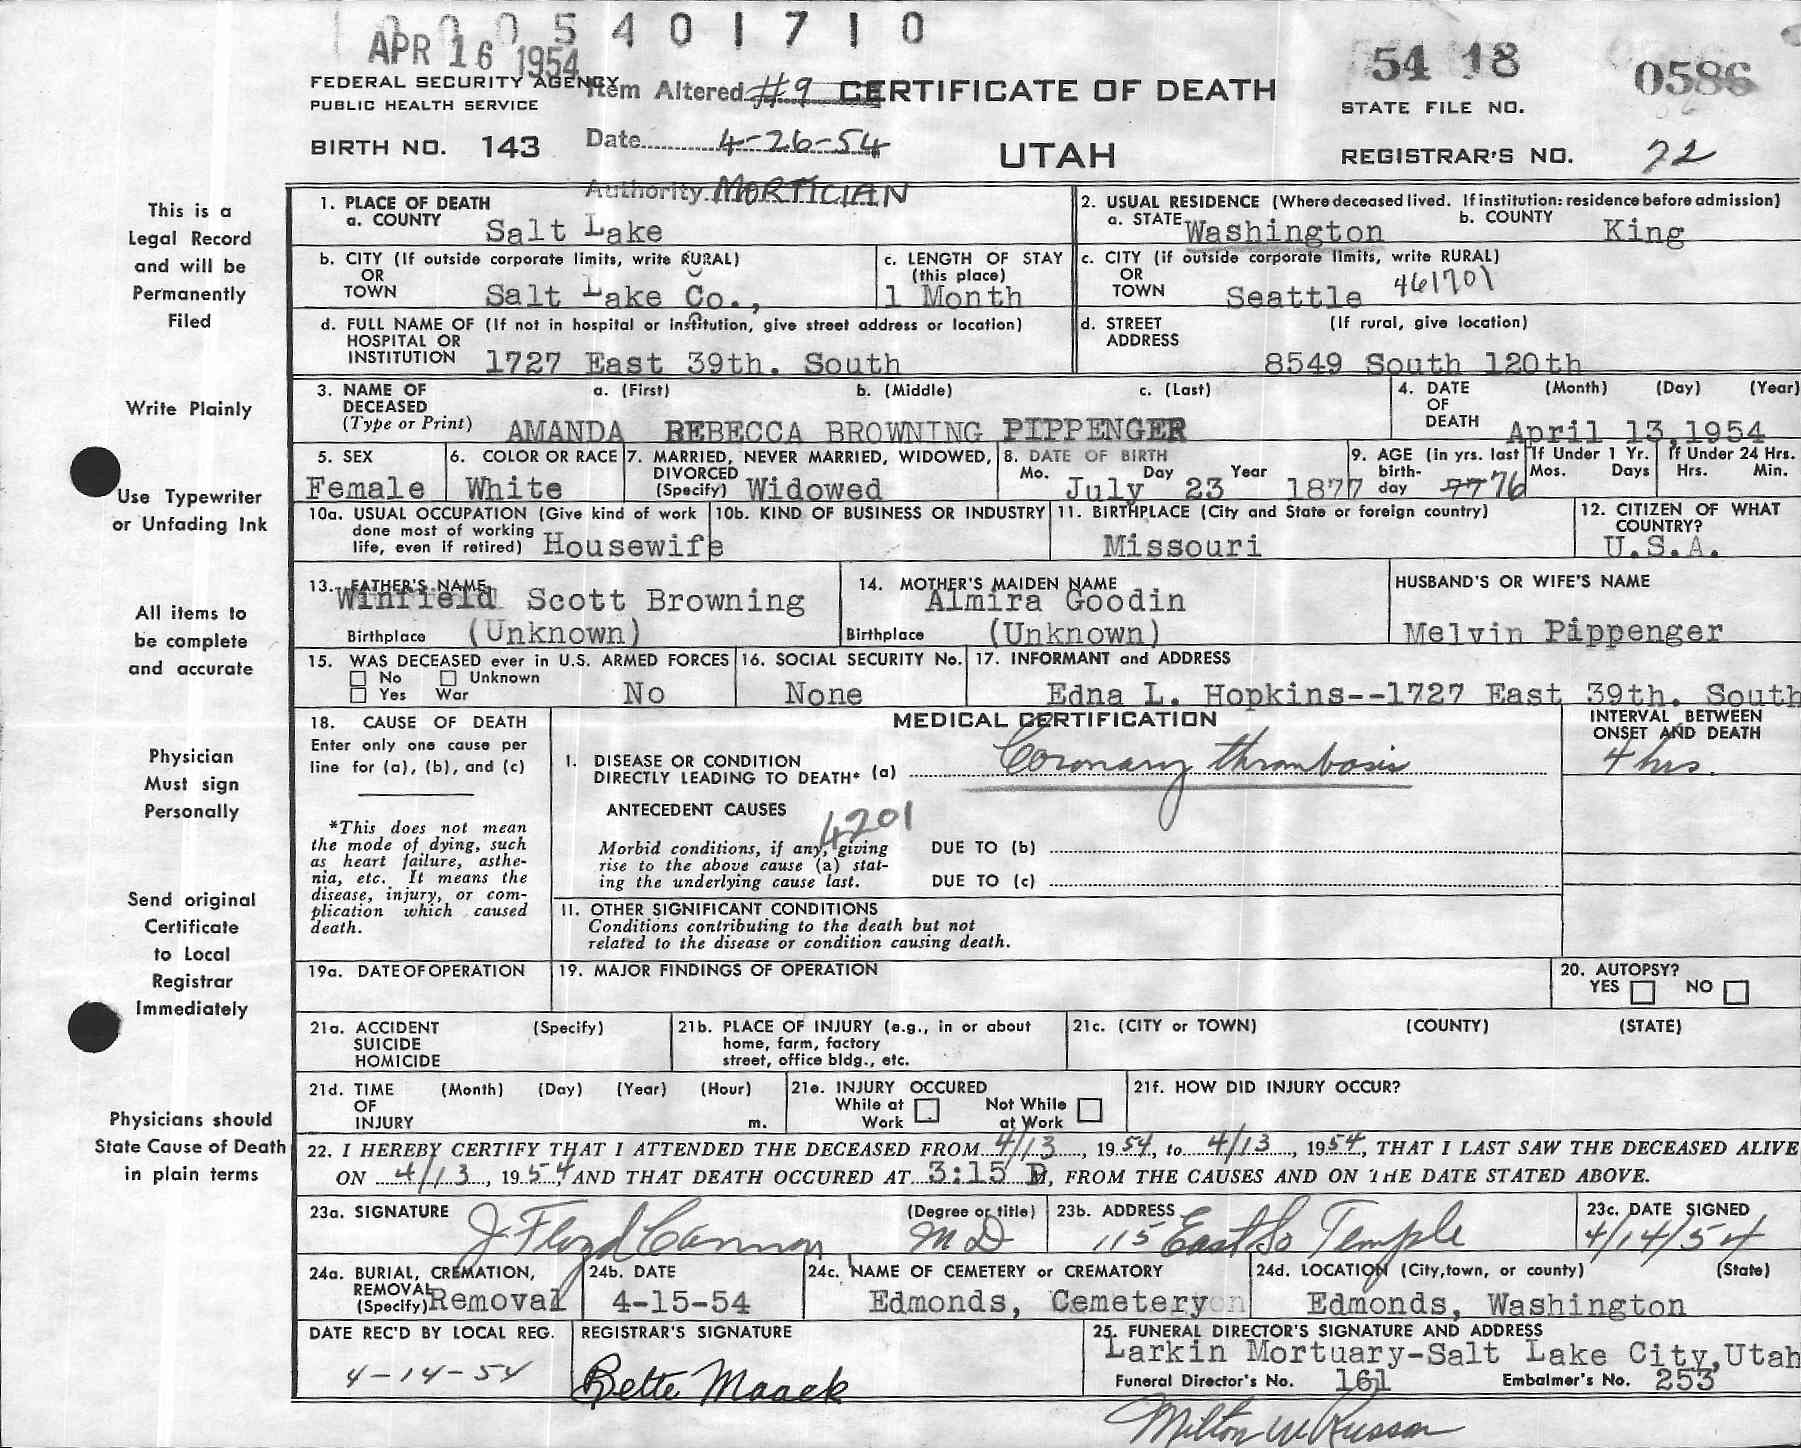 1 0 0 0 5 4 0 1 7 1 0
APR 16 1954
54 18
0586
FEDERAL SECURITY AGENCY
PUBLIC HEALTH SERVICE
Item Altered #9
CERTIFICATE OF DEATH
STATE FILE NO.
BIRTH NO. 143
Date 4-26-54
UTAH
REGISTRAR'S NO. 72
Authority MORTICIAN
This is a
Legal Record
and will be
Permanently
Filed
Write Plainly
Use Typewriter
or Unfading Ink
All items to
be complete
and accurate
Physician
Must sign
Personally
Send original
Certificate
to Local
Registrar
Immediately
Physicians should
State Cause of Death
in plain terms
1. PLACE OF DEATH
a. COUNTY Salt Lake
2. USUAL RESIDENCE (Where deceased lived. If institution: residence before admission)
a. STATE Washington b. COUNTY King
b. CITY (If outside corporate limits, write RURAL)
OR
TOWN Salt Lake Co.,
c. LENGTH OF STAY
(this place)
1 Month
c. CITY (if outside corporate limits, write RURAL)
OR
TOWN Seattle 461701
d. FULL NAME OF (If not in hospital or institution, give street address or location)
HOSPITAL OR
INSTITUTION 1727 East 39th. South
d. STREET (If rural, give location)
ADDRESS
8549 South 120th
3. NAME OF a. (First) b. (Middle) c. (Last)
DECEASED
(Type or Print) AMANDA REBECCA BROWNING PIPPENGER
4. DATE (Month) (Day) (Year)
OF
DEATH April 13,1954
5. SEX
Female
6. COLOR OR RACE
White
7. MARRIED, NEVER MARRIED, WIDOWED,
DIVORCED
(Specify) Widowed
8. DATE OF BIRTH
Mo. Day Year
July 23 1877
9. AGE (in yrs. last
birth-
day 77 76
If Under 1 Yr.
Mos. Days
If Under 24 Hrs.
Hrs. Min.
10a. USUAL OCCUPATION (Give kind of work
done most of working
life, even if retired) Housewife
10b. KIND OF BUSINESS OR INDUSTRY
11. BIRTHPLACE (City and State or foreign country)
Missouri
12. CITIZEN OF WHAT
COUNTRY?
U.S.A.
13. FATHER'S NAME
Winfield Scott Browning
Birthplace (Unknown)
14. MOTHER'S MAIDEN NAME
Almira Goodin
Birthplace (Unknown)
HUSBAND'S OR WIFE'S NAME
Melvin Pippenger
15. WAS DECEASED ever in U.S. ARMED FORCES
No Unknown
Yes War No
16. SOCIAL SECURITY No.
None
17. INFORMANT and ADDRESS
Edna L. Hopkins--1727 East 39th. South
18. CAUSE OF DEATH
Enter only one cause per
line for (a), (b), and (c)
*This does not mean
the mode of dying, such
as heart failure, asthe-
nia, etc. It means the
disease, injury, or com-
plication which caused
death.
MEDICAL CERTIFICATION
INTERVAL BETWEEN
ONSET AND DEATH
I. DISEASE OR CONDITION
DIRECTLY LEADING TO DEATH* (a) Coronary thrombosis
4 hrs.
ANTECEDENT CAUSES
4201
Morbid conditions, if any, giving
rise to the above cause (a) stat-
ing the underlying cause last.
DUE TO (b)
DUE TO (c)
II. OTHER SIGNIFICANT CONDITIONS
Conditions contributing to the death but not
related to the disease or condition causing death.
19a. DATE OF OPERATION
19. MAJOR FINDINGS OF OPERATION
20. AUTOPSY?
YES NO
21a. ACCIDENT (Specify)
SUICIDE
HOMICIDE
21b. PLACE OF INJURY (e.g., in or about
home, farm, factory
street, office bldg., etc.
21c. (CITY or TOWN) (COUNTY) (STATE)
21d. TIME (Month) (Day) (Year) (Hour)
OF
INJURY m.
21e. INJURY OCCURED
While at Not While
Work at Work
21f. HOW DID INJURY OCCUR?
22. I HEREBY CERTIFY THAT I ATTENDED THE DECEASED FROM 4/13, 1954, to 4/13, 1954, THAT I LAST SAW THE DECEASED ALIVE
ON 4/13, 1954, AND THAT DEATH OCCURED AT 3:15 P, FROM THE CAUSES AND ON THE DATE STATED ABOVE.
23a. SIGNATURE (Degree or title)
J. Floyd Cannon, MD
23b. ADDRESS
115 East So Temple
23c. DATE SIGNED
4/14/54
24a. BURIAL, CREMATION,
REMOVAL
(Specify) Removal
24b. DATE
4-15-54
24c. NAME OF CEMETERY or CREMATORY
Edmonds, Cemetery
24d. LOCATION (City, town, or county) (State)
Edmonds, Washington
DATE REC'D BY LOCAL REG.
4-14-54
REGISTRAR'S SIGNATURE
Bette Maack
25. FUNERAL DIRECTOR'S SIGNATURE AND ADDRESS
Larkin Mortuary-Salt Lake City,Utah
Funeral Director's No. 161 Embalmer's No. 253
Milton W Russon